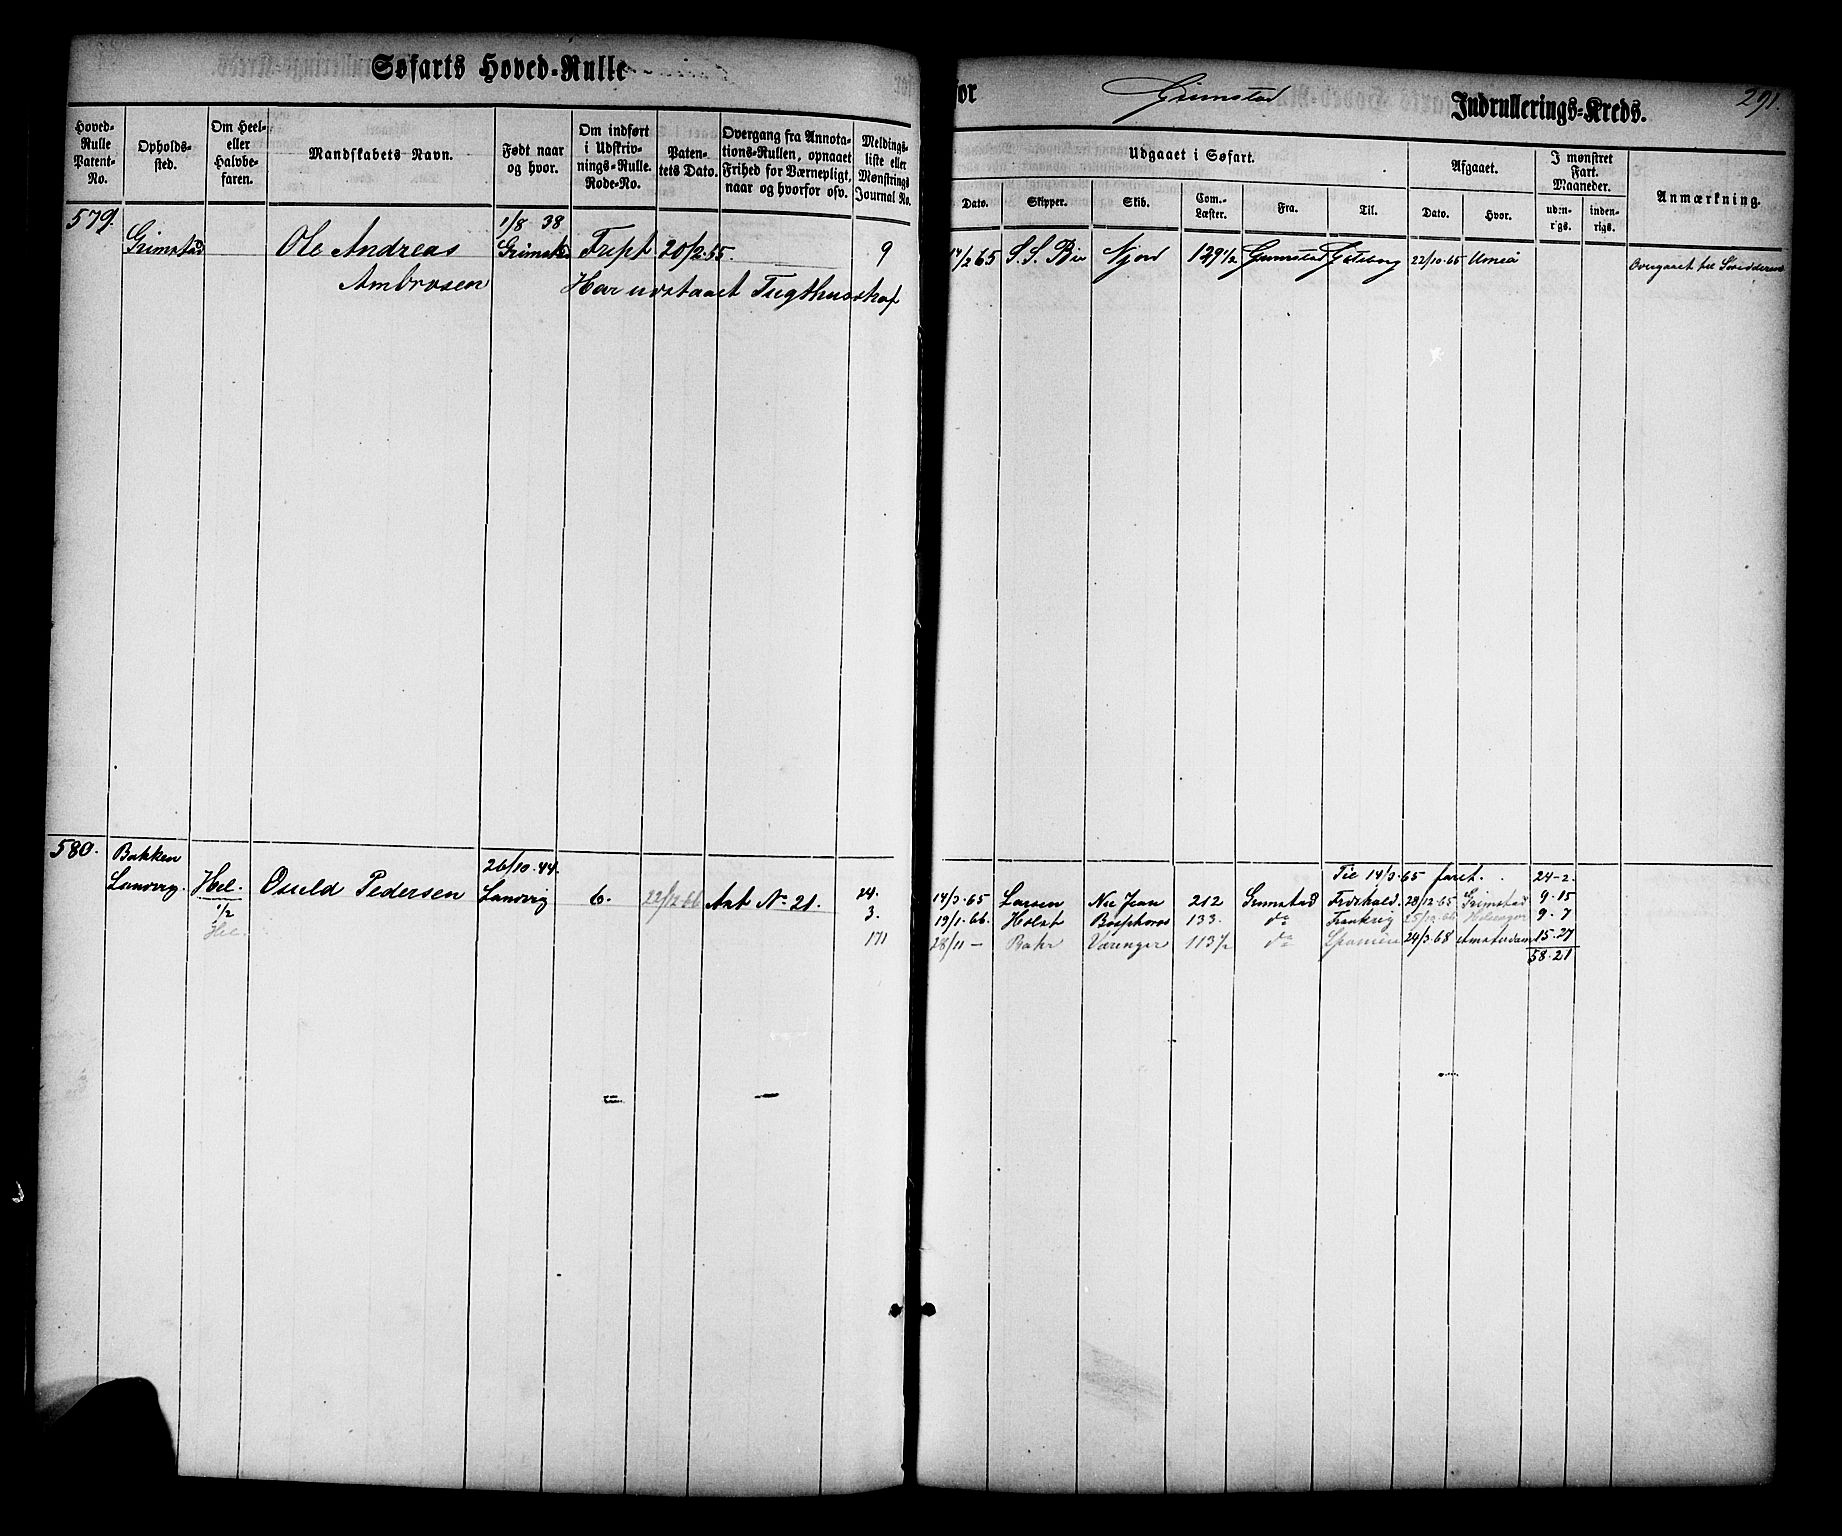 Søfarts Hoved-Rulle
for Grimstad Indrullerings-Kreds. 291.
Hoved-Rulle Patent-No.
Opholdssted.
Om Heel- eller Halvbefaren.
Mandskabets Navn.
Født naar og hvor.
Om indført i Udskrivnings-Rulle. Rode-No.
Patentets Dato.
Overgang fra Annotations-Rullen, opnaaet Frihed for Værnepligt, naar og hvorfor osv.
Meldingsliste eller Mønstrings Journal No.
Udgaaet i Søfart.
Dato. Skipper. Skib. Com.-Læster. Fra. Til.
Afgaaet.
Dato. Hvor.
I mønstret Fart. Maaneder.
uden-rigs. inden-rigs.
Anmærkning.
579. 1/8 38
Grimstad Ole Andreas Grimstad 20/2.55. 9 14/2 65 S. S. Bie Njord 129 1/2 Grimstad Gøteborg 22/10.65 Umeå Overgaaet til
Ambrosen Har udstaaet Tugthusstraf
580. Bakken 26/10.44. Til 14/3.65 faret. 24-2.
Landvig. Hel. Osuld Pedersen Landvig 6. 22/2 66 Ant No 21. 24. 14/3.65 Larsen 212 Grimstad Fredrhald. 28/12.65 Grimstad 9-15
1/2 3. 19/1.66. Holst Bosphorus 133. do Frankrig 25/10.66 9-7
Hel. 171 28/11 - Væringer 113 1/2 do Spanien 24/3.68 Amsterdam 15-27
58-21